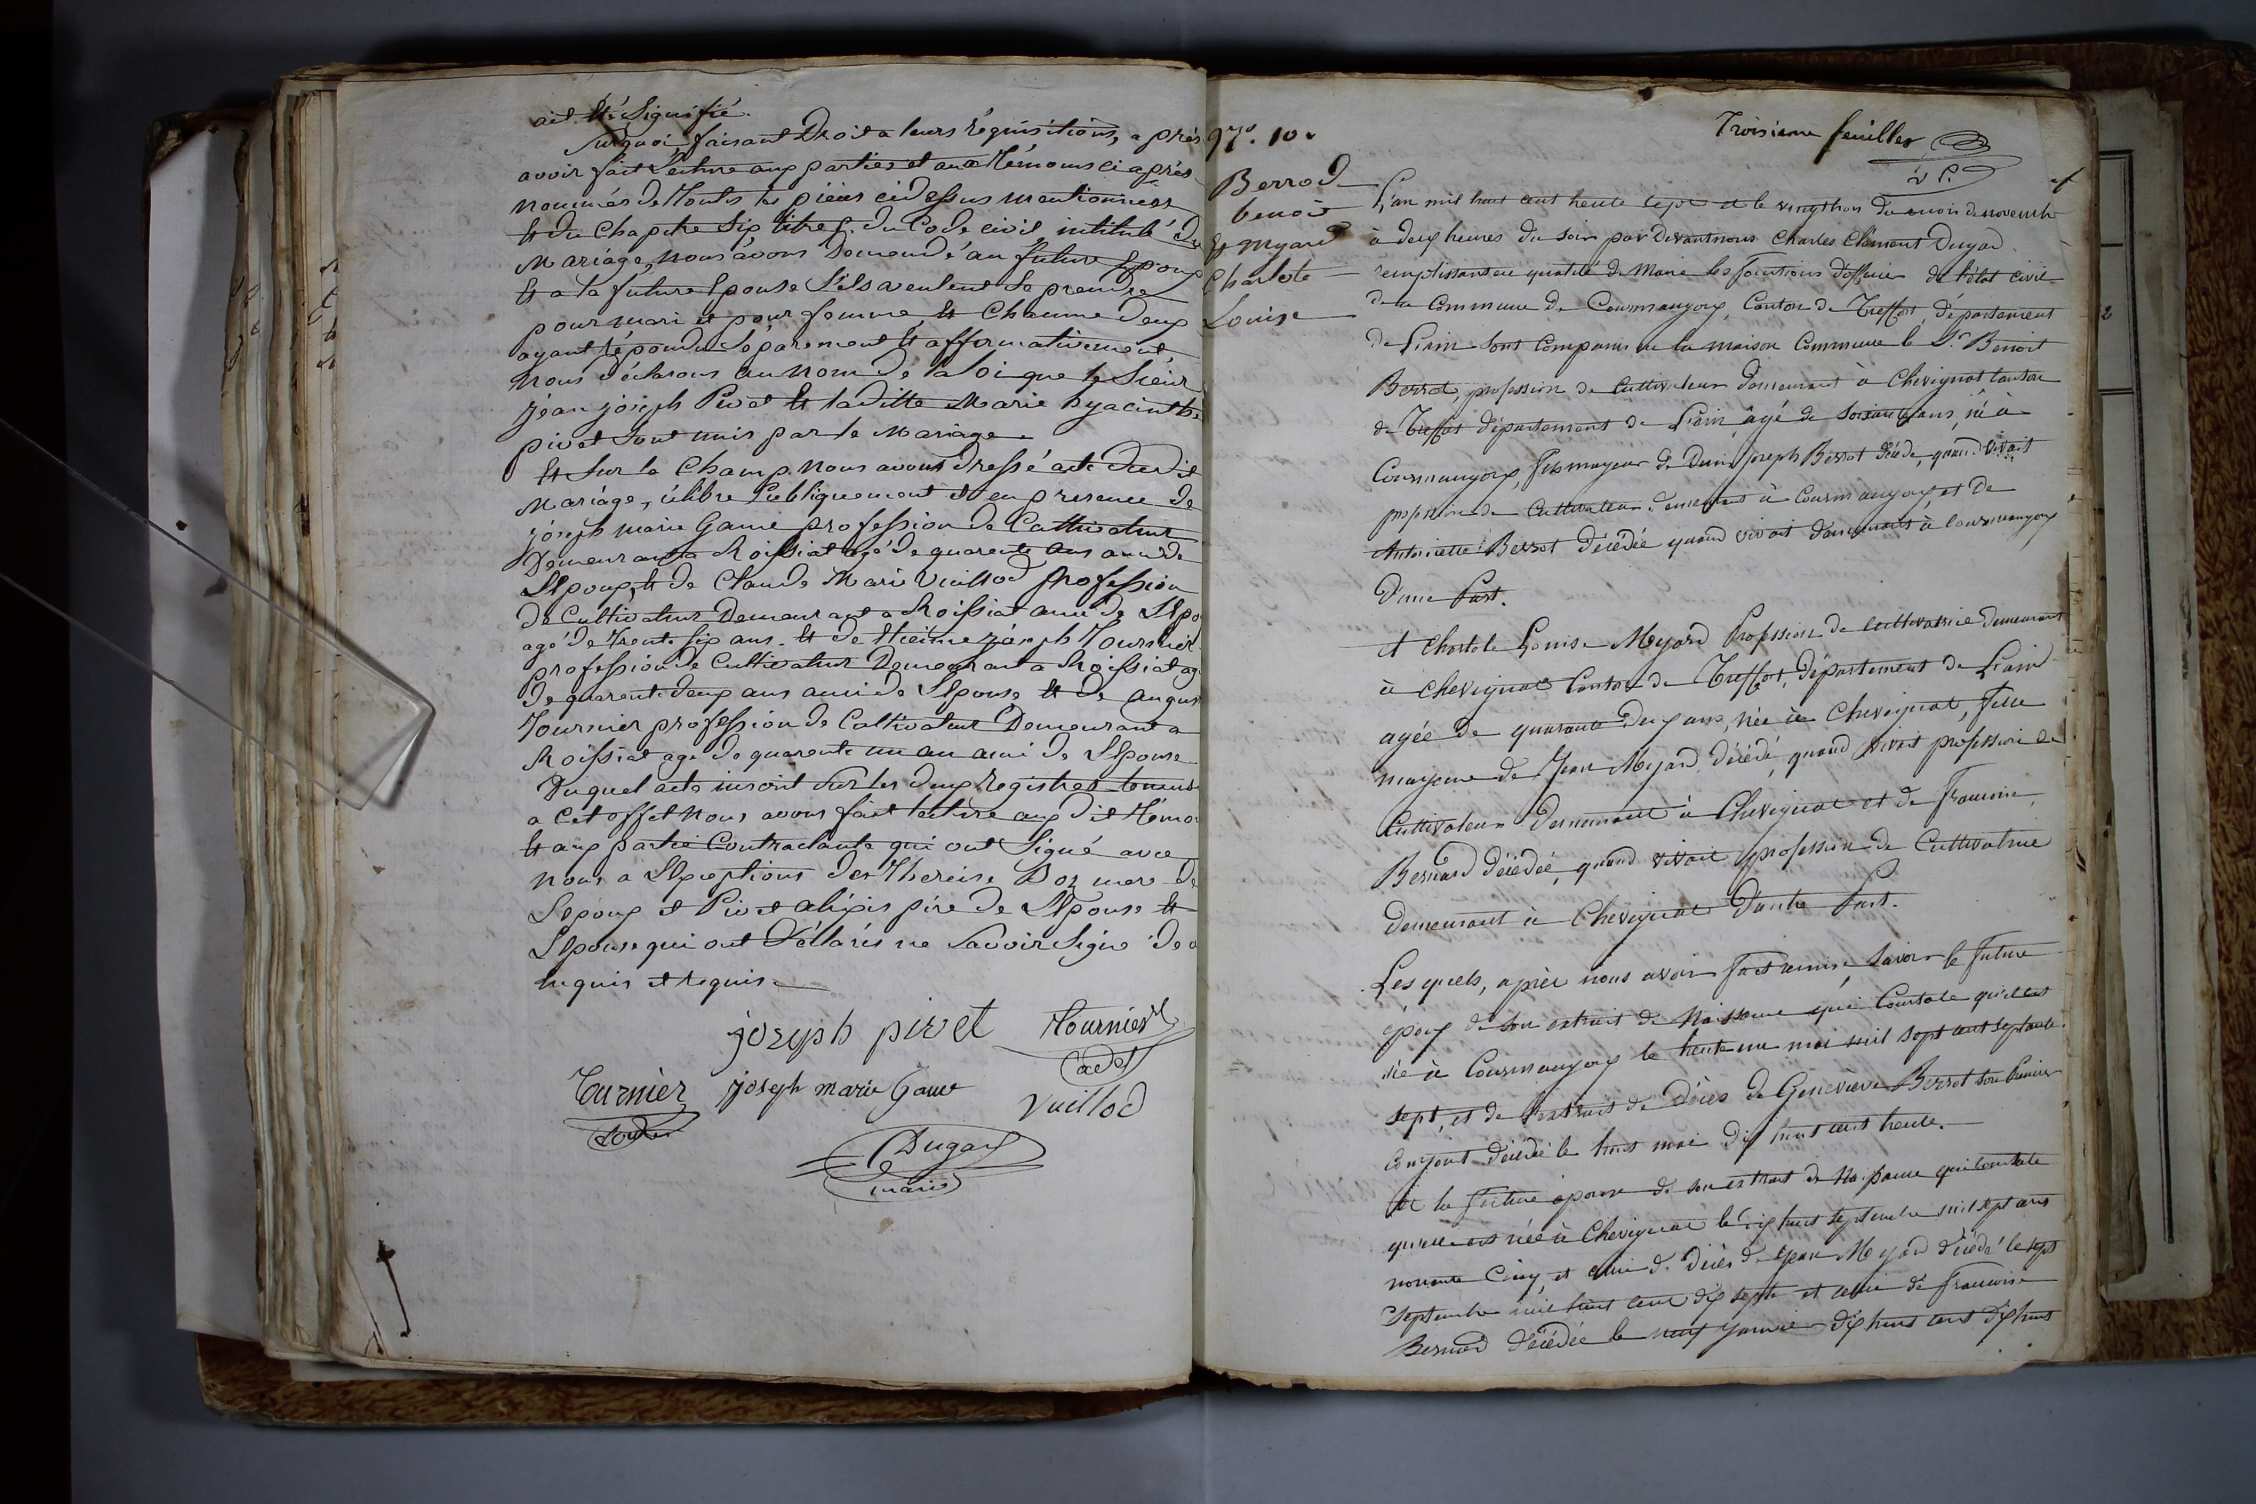 ait été Signifié.
Surquoi faisant Droit a leurs réquisitions, après
avoir fait Lecture aux parties et aux témoins ci après
nommés de toutes les pièces cidessus mentionnées
et du Chapitre Six titre 5. du Code civil intitulé du
Mariage, nous avons demandé au future Epoux
et a la future Epouse S'ils veulent Se prendre
pour mari et pour femme et Chacune deux
ayant répondu Séparement et affirmativement,
nous déclarons au nom de la Loi que le Sieur
jean joseph Pivet et laditte Marie hyacinthe
pivet sont unis par le Mariage.
Et Sur le Champ nous avons dressé acte dudit
Mariage, célébre Publiquement et en presence de
joseph marie Game profession de Cultivateur
Demeurant a Roissiat agé de quarente ans ami de
LEpoux, et de Claude Marie Vuillod profession
De Cultivateur Demeurant a Roissiat ami de LEpo
agé de trente six ans. et de joseph Tournier
profession de Cultivateur Demeurant a Roissiat ag
de quarente deux ans ami de LEpouse et de august
Tournier profession de Cultivateur Demeurant a
Roissiat agé de quarente un an ami de LEpouse
Duquel acte inscrit Sur les deux registres tenus
a Cet effet nous avons fait lecture aux dit témo
et aux partie Contractante qui ont Signé avec
nous a LExeptions des Thereise Boz mere de
LEpoux et Pivet alexis père de LEpouse et
LEpouse qui ont Déclarés ne Savoir Signé de ce
enquis et requis.
joseph pivet Tournier
cadet
Turnier joseph marie Game Vuillod
Dugad
maire
N°. 10.
Berrod
benoit
Et Myard
Charlote
Louise
Troisieme feuillet
L'an mil huit cent trente sept et le vingt trois du mois de novembre
à deux heures du soir par Devant nous Charles Clément Dugad
remplissant en qualité de Maire les fonctions d'officier de l'état civil
de la Commune de Courmangoux, Canton de Treffort, département
de L'ain sont Comparus en la maison Commune le Sr. Benoit
Berrot, profession de Cultivateur demeurant à Chevignat Canton
de Treffort département de L'ain, âgé de soixante ans, né à
Courmangoux, fils majeur de Denis joseph Berrot décédé, quand vivait
profession de Cultivateur demeurant à Courmangoux, et de
Antoinette Berrot décédée quand vivait demeurant à Courmangoux
d'une Part.
et Charlote Louise Meyard Profession de Cultivatrice demeurant
à Chevignat Canton de Treffort, département de L'ain
agée de quarante deux ans, née à Chevignat, fille
majeure de Jean Meyard, décédé, quand vivait profession de
Cultivateur demeurant à Chevignat et de francoise
Bernard décédée, quand vivait profession de Cultivatrice
demeurant à Chevignat D'autre Part.
Les quels, après nous avoir fait remise, savoir le future
époux de son extrait de Naissance qui Constate qu'il est
né à Courmangoux le trente un mai mil sept cent septante
sept, et de l'extrait de décès de Geneviève Berrot son premier
Conjoint décédé le huit mai dix huit cent trente.
Et la future épouse de son extrait de Naissance qui Constate
qu'elle est née à Chevignat le dix huit septembre mil sept cent
nonante Cinq, et celui de décès de Jean Meyard décédé le sept
Septembre mil huit cent dix sept et celui de francoise
Bernard décédée le neuf Janvier dix huit cent dix huit